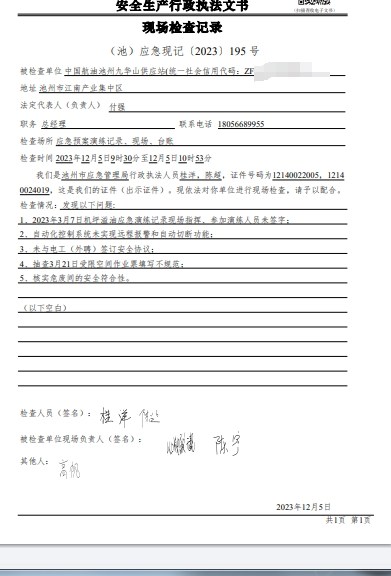 安全生产行政执法文书
现场检查记录
（池）应急现记〔2023〕195 号
被检查单位 中国航油池州九华山供应站(统一社会信用代码：ZF
地址 池州市江南产业集中区
法定代表人（负责人） 付强
职务 总经理 联系电话 18056689955
检查场所 应急预案演练记录、现场、台账
检查时间 2023年12月5日9时30分至12月5日10时53分
我们是池州市应急管理局行政执法人员桂洋、陈超，证件号码为12140022005，1214
0024019，这是我们的证件（出示证件）。现依法对你单位进行现场检查，请予以配合。
检查情况：发现以下问题：
1、2023年3月7日机坪溢油应急演练记录现场指挥、参加演练人员未签字；
2、自动化控制系统未实现远程报警和自动切断功能；
3、未与电工（外聘）签订安全协议；
4、抽查3月21日受限空间作业票填写不规范；
5、核实危废间的安全符合性。
（以下空白）
检查人员（签名）： 桂洋
被检查单位现场负责人（签名）： 陈宇
其他人： 高帆
2023年12月5日
共1页 第1页